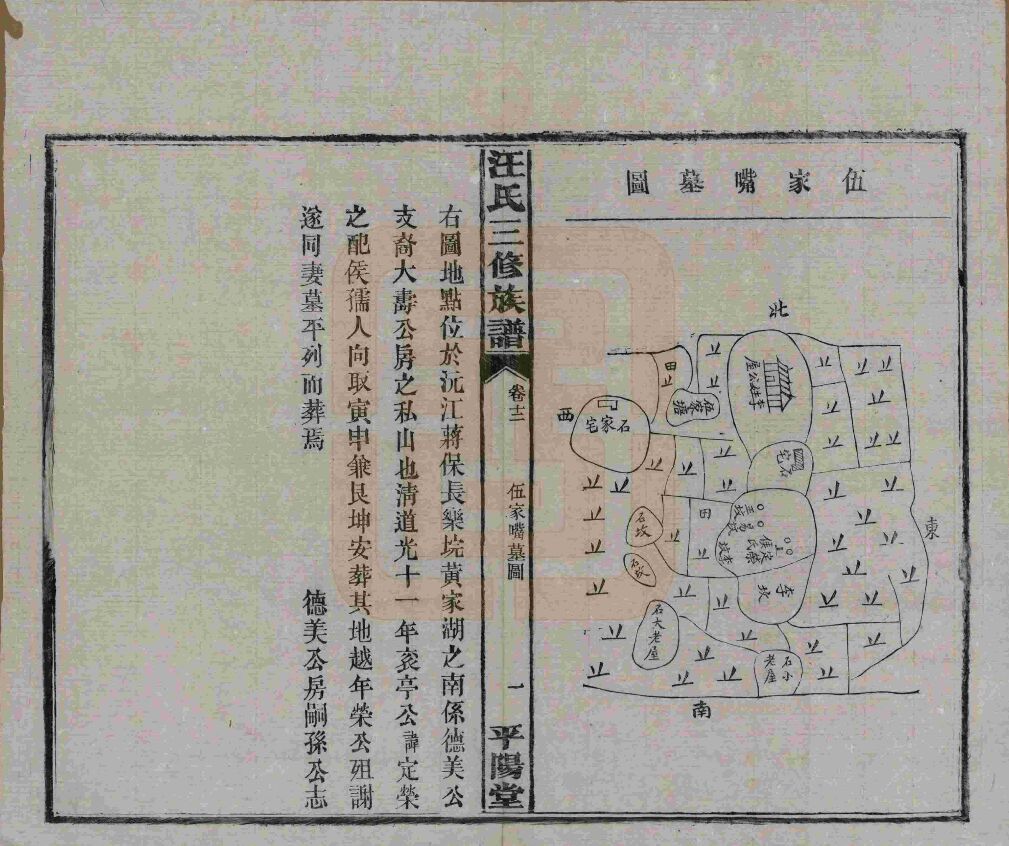 伍家嘴墓圖
北
東
西
南
李姓公屋
伍家塘
田
石家宅
石宅
田
定榮
侯氏
易坟
王坟
李坟
李坎
石坟
石坟
石大老屋
石小老屋
汪氏三修族譜
卷十二
伍家嘴墓圖
一
平陽堂
右圖地點位於沅江蔣保長樂垸黃家湖之南係德美公
支裔大壽公房之私山也清道光十一年袞亭公諱定榮
之配侯孺人向取寅申兼艮坤安葬其地越年榮公殂謝
遂同妻墓平列而葬焉
德美公房嗣孫公志